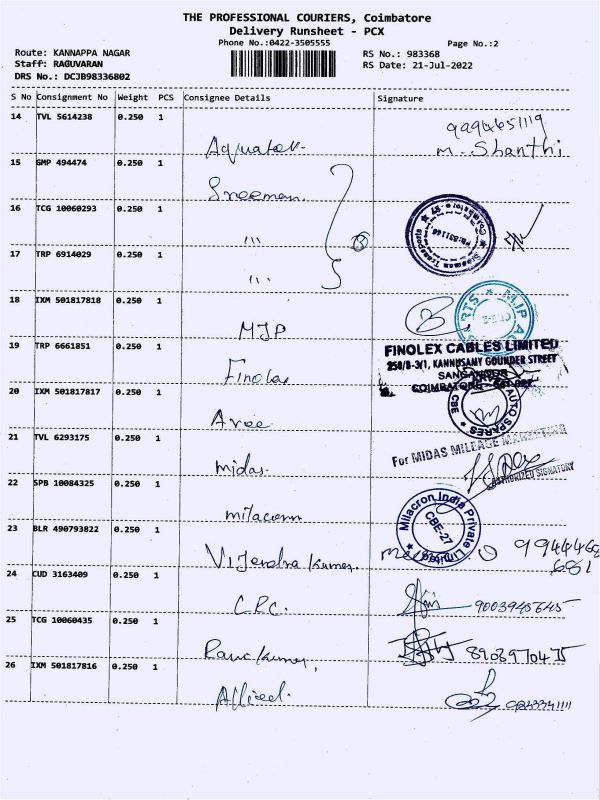 THE PROFESSIONAL COURIERS, Coimbatore
Delivery Runsheet - PCX
Phone No.:0422-3505555
Page No.:2
Route: KANNAPPA NAGAR
RS No.: 983368
Staff: RAGUVARAN
RS Date: 21-Jul-2022
DRS No.: DCJB98336802
S No Consignment No Weight PCS Consignee Details Signature
14 TVL 5614238 0.250 1
9994651119
Aquatek
M. Shanthi
15 GMP 494474 0.250 1
Sreeman
16 TCG 10060293 0.250 1
Sreeman Transports
Coimbatore
,,,
17 TRP 6914029 0.250 1
,,,
18 IXM 501817818 0.250 1
MJP
MJP
19 TRP 6661851 0.250 1
FINOLEX CABLES LIMITED
250/B-3/1, KANNUSAMY GOUNDER STREET
Finolex
COIMBATORE
20 IXM 501817817 0.250 1
AUTO SPARES
CBE
21 TVL 6293175 0.250 1
For MIDAS MILEAGE
midas
AUTHORIZED SIGNATORY
22 SPB 10084325 0.250 1
Milacron India Private Limited
CBE-27
milacron
23 BLR 490793822 0.250 1
Vijendra Kumar
24 CUD 3163409 0.250 1
C.P.C.
9003945645
25 TCG 10060435 0.250 1
8903970475
26 IXM 501817816 0.250 1
Allied